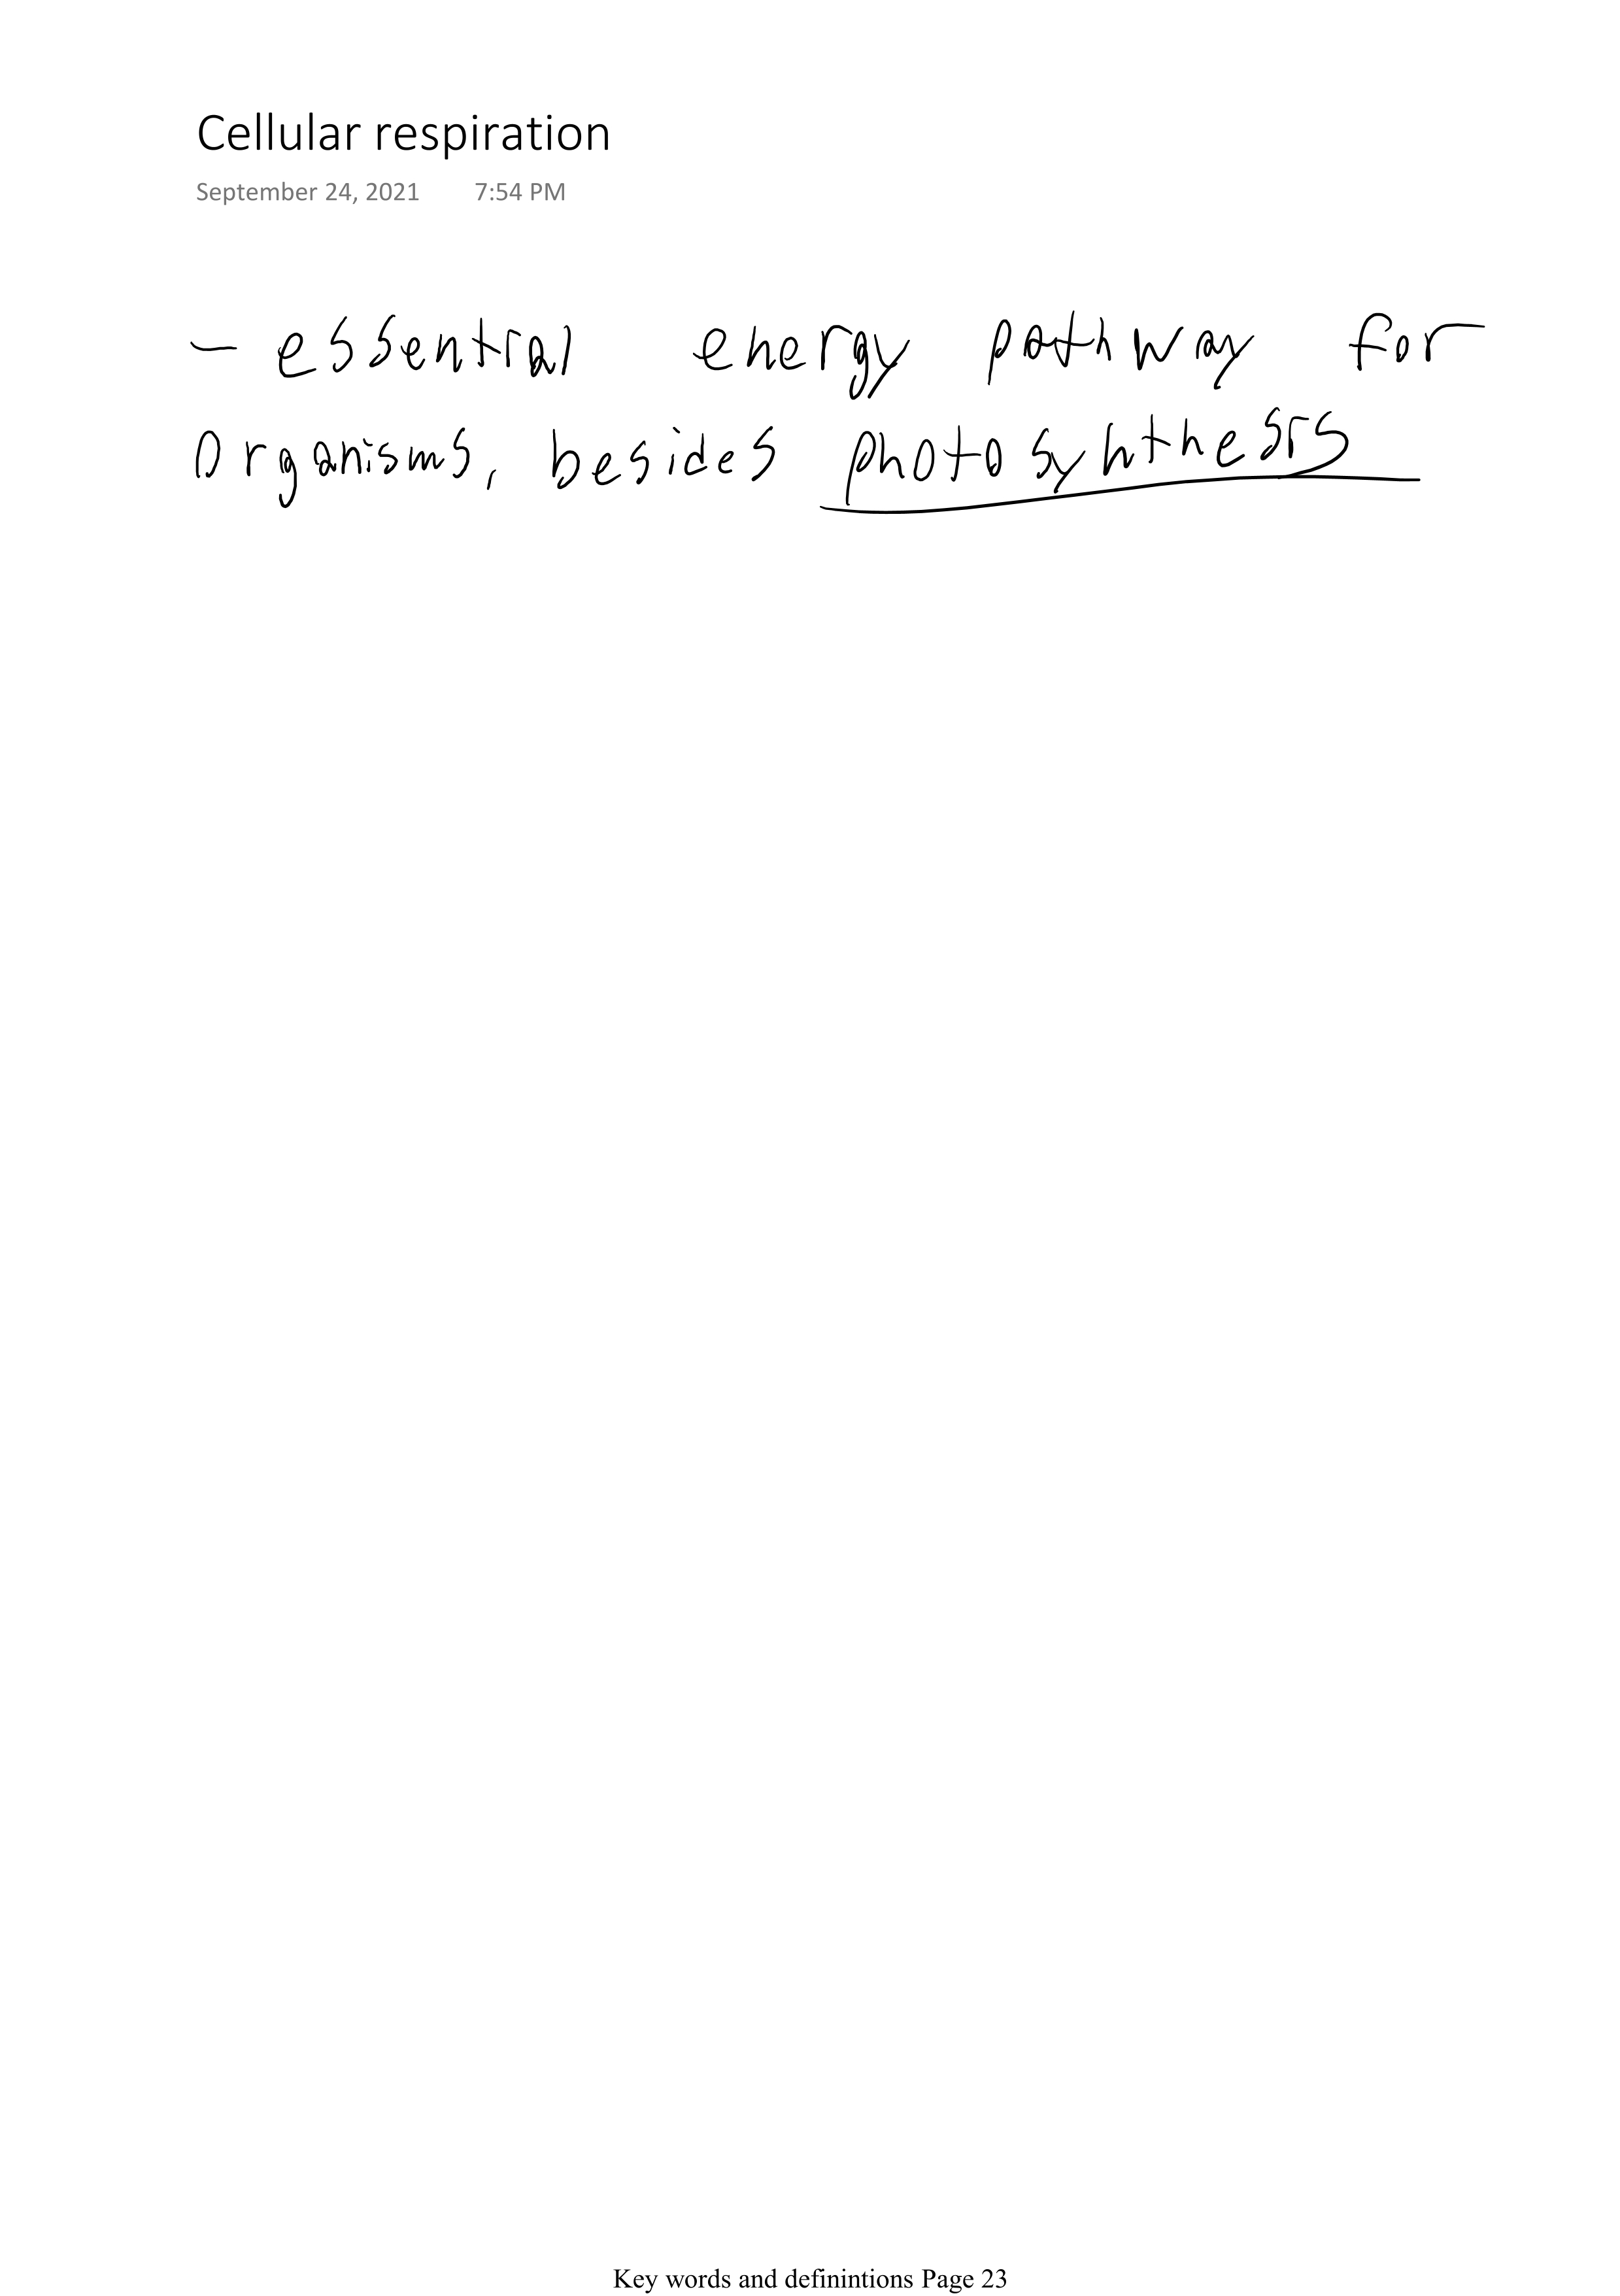 Cellular respiration
September 24, 2021 7:54 PM
- essential energy pathway for
organisms, besides photosynthesis
Key words and definintions Page 23